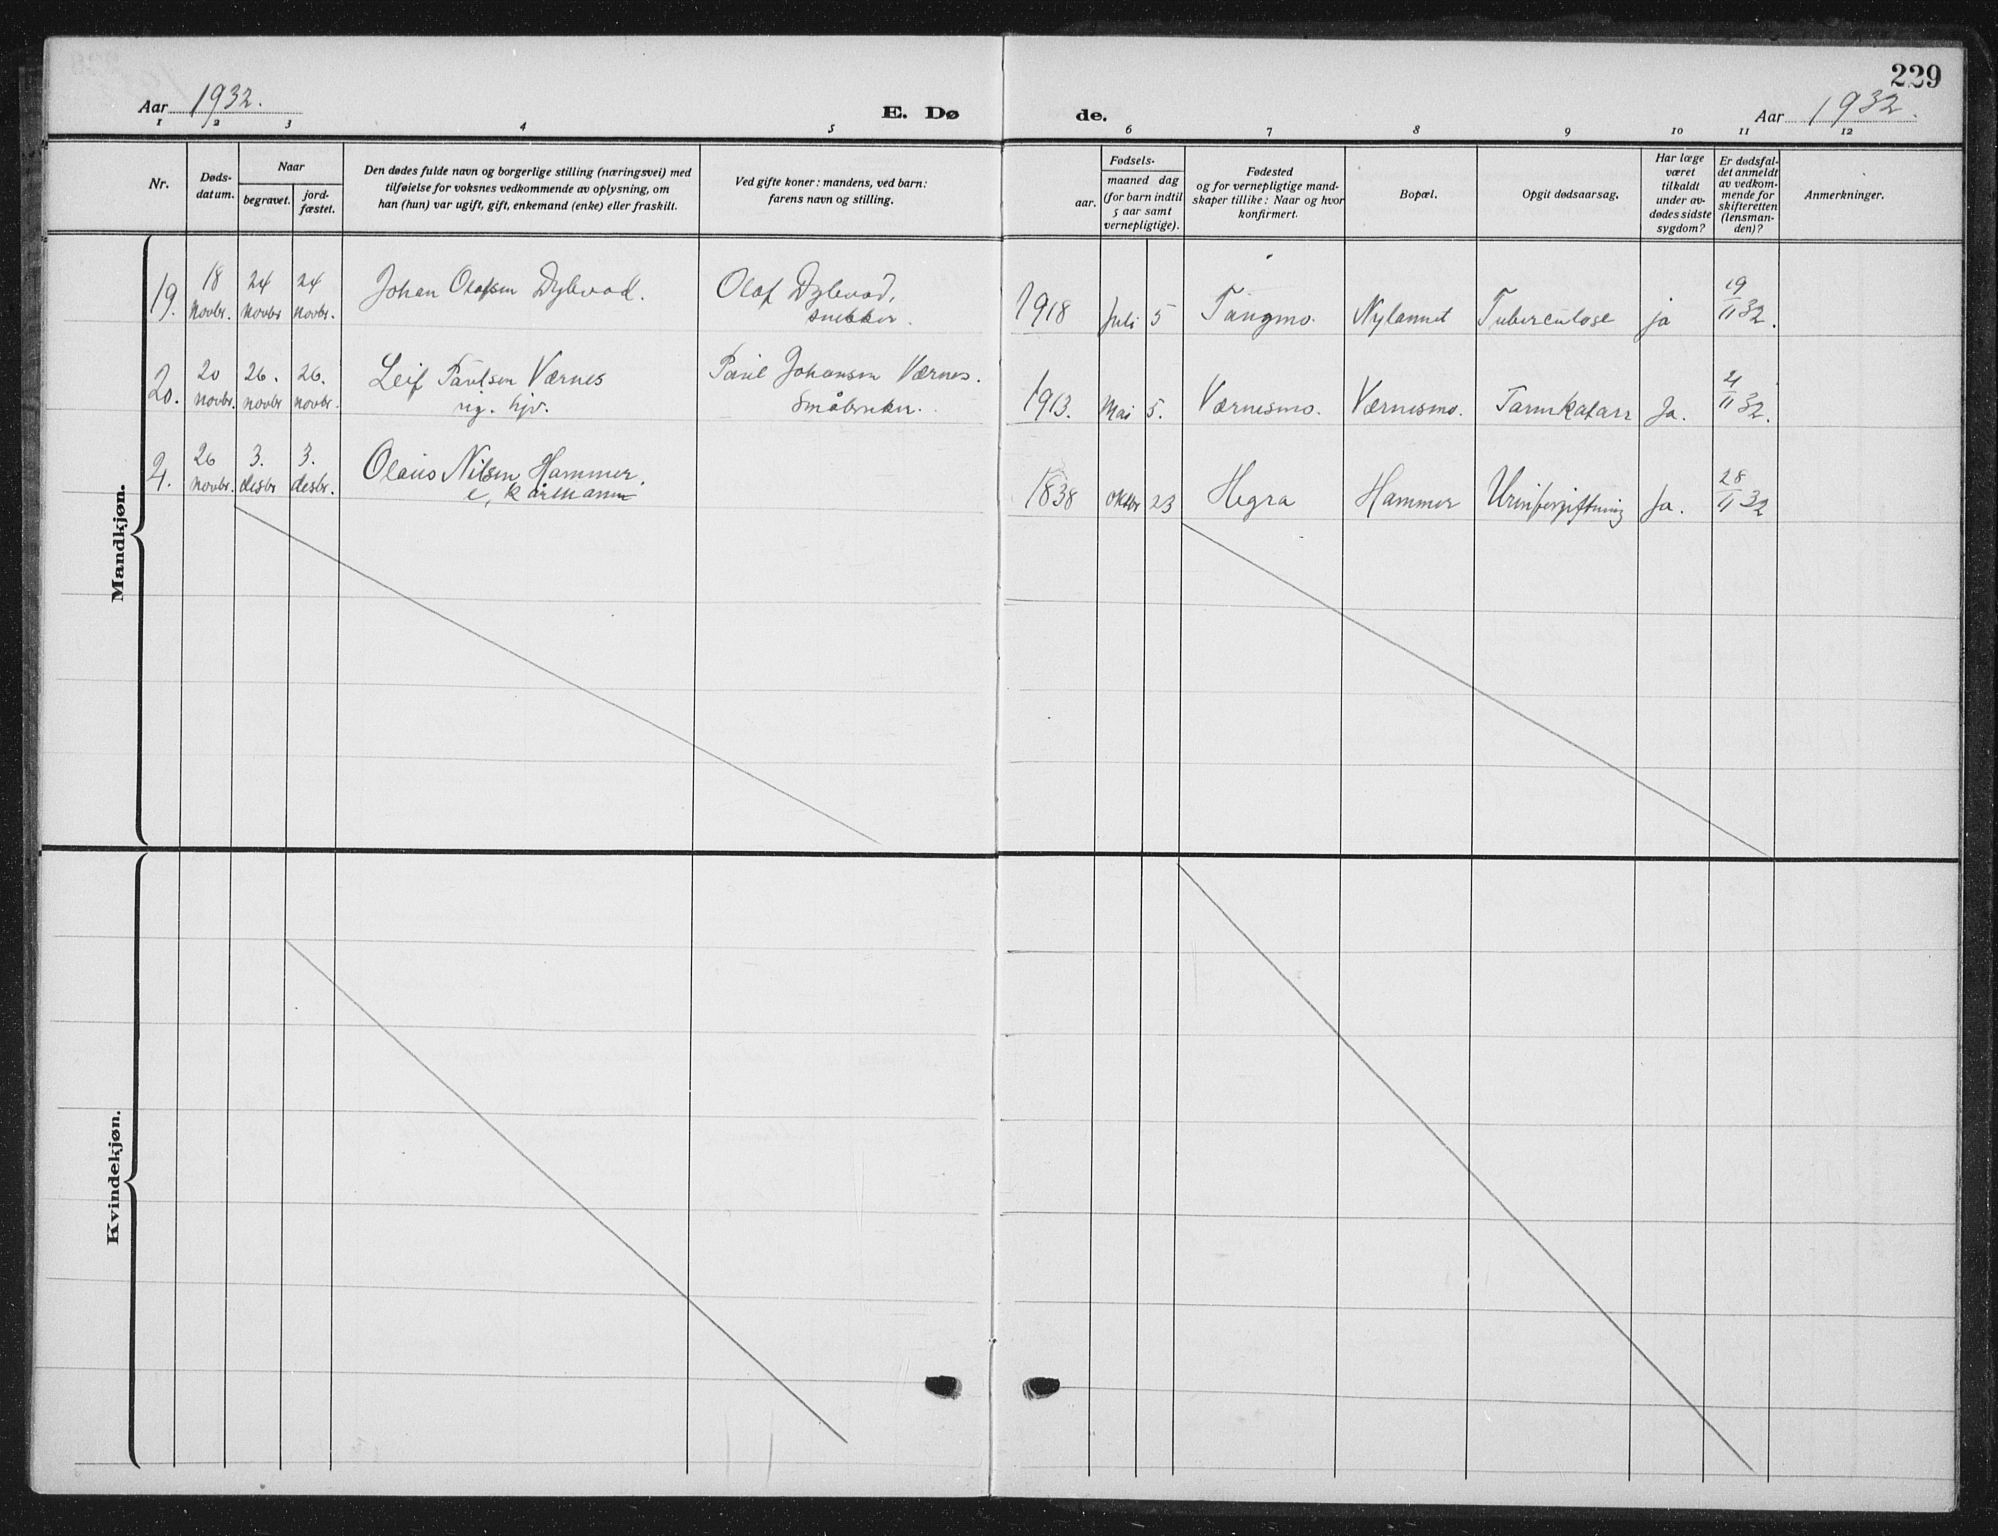 229
Aar 1932.
E. Dø
de.
Aar 1932.
1 2 3 4 5 6 7 8 9 10 11 12
Nr.
Døds-
datum.
Naar
begravet.
jord-
fæstet.
Den dødes fulde navn og borgerlige stilling (næringsvei) med
tilføielse for voksnes vedkommende av oplysning, om
han (hun) var ugift, gift, enkemand (enke) eller fraskilt.
Ved gifte koner: mandens, ved barn:
farens navn og stilling.
Fødsels-
aar.
maaned dag
(for barn indtil
5 aar samt
vernepligtige).
Fødested
og for vernepligtige mand-
skaper tillike: Naar og hvor
konfirmert.
Bopæl.
Opgit dødsaarsag.
Har læge
været
tilkaldt
under av-
dødes sidste
sygdom?
Er dødsfal-
det anmeldt
av vedkom-
mende for
skifteretten
(lensman-
den)?
Anmerkninger.
Mandkjøn.
19. 18 novbr. 24 novbr 24 novbr. Johan Olafsen Dybvad. Olaf Dybvad, snekker. 1918 Juli 5 Tangmo. Nylannet Tuberculose ja 19/11 32.
20. 20 novbr. 26. novbr 26. novbr. Leif Paulsen Værnes Paul Johansen Værnes. Småbruker. 1913. Mai 5. Værnesmo. Værnesmo. Tarmkatarr Ja. 21/11 32.
21. 26 novbr. 3. desbr 3. desbr. Olaus Nilsen Hammer. e, kårmann 1838 oktbr 23 Hegra Hammer Urinforgiftning Ja. 28/11 32
Kvindekjøn.